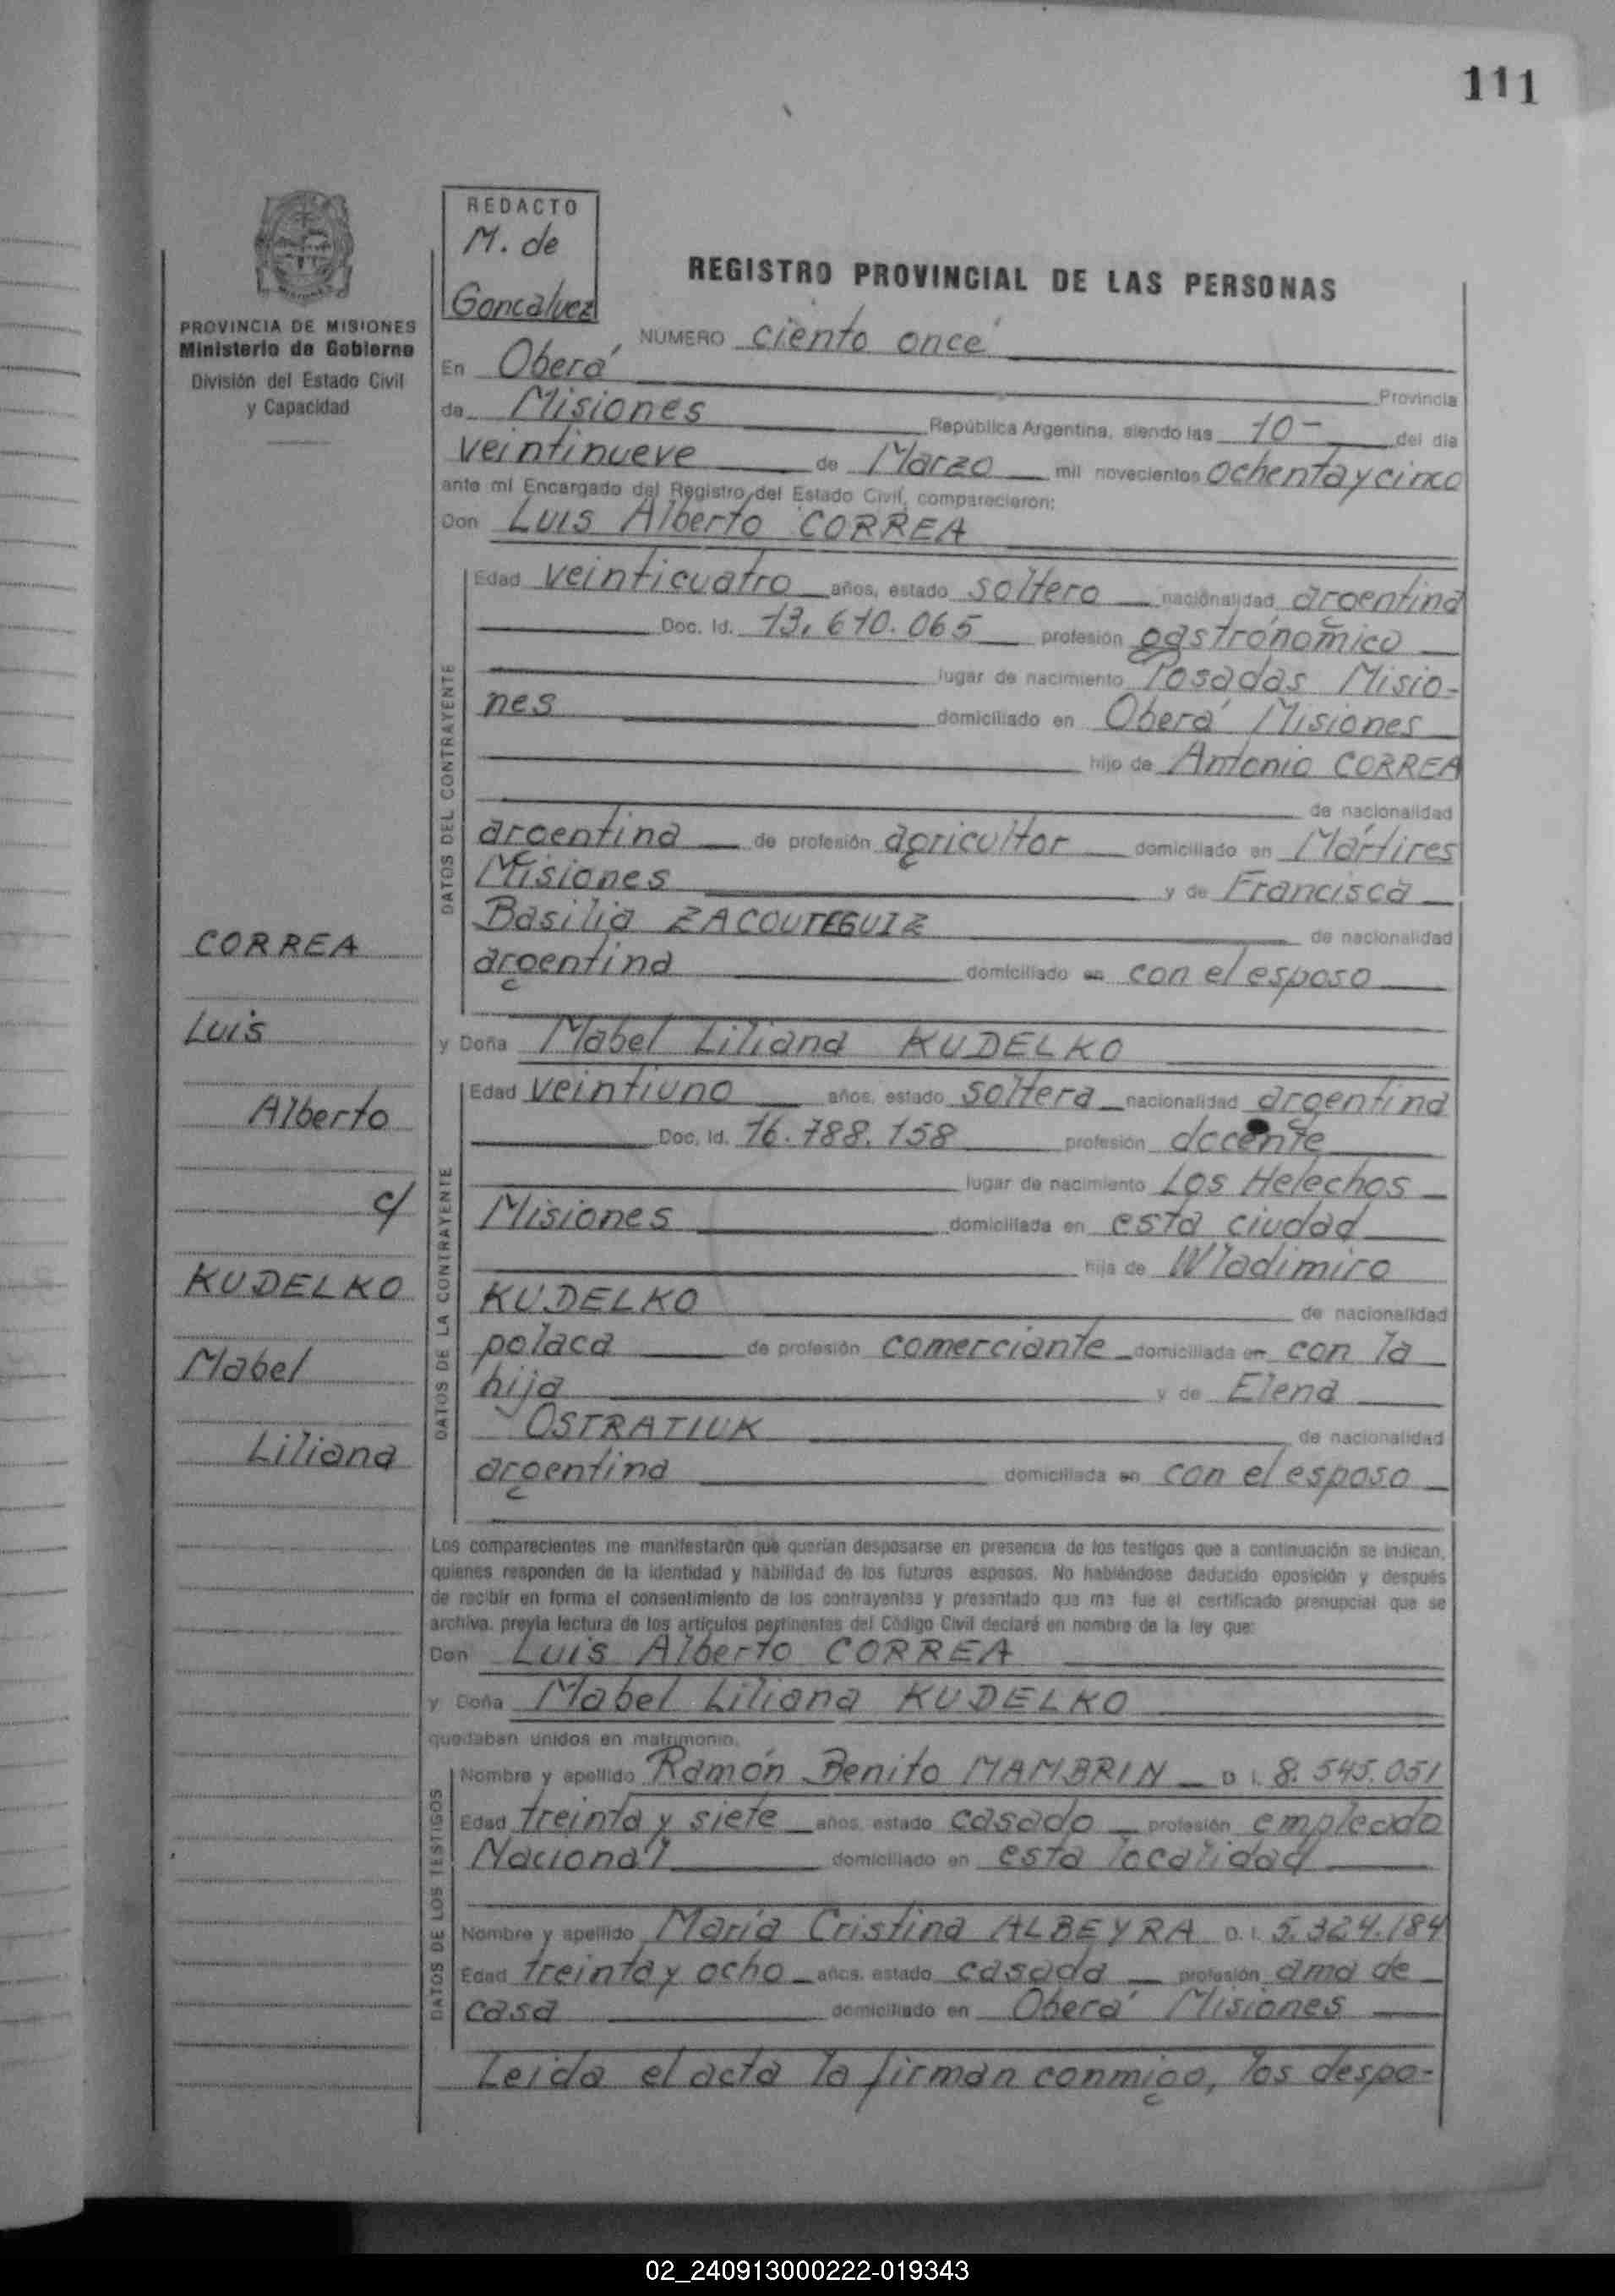 111
REDACTO
M. de
Goncalvez
REGISTRO PROVINCIAL DE LAS PERSONAS
PROVINCIA DE MISIONES
Ministerio de Gobierno
División del Estado Civil
y Capacidad
NUMERO ciento once
En Oberá Provincia
de Misiones República Argentina, siendo las 10- del día
veintinueve de Marzo mil novecientos ochenta y cinco
ante mí Encargado del Registro del Estado Civil, comparecieron:
Don Luis Alberto CORREA
DATOS DEL CONTRAYENTE
Edad veinticuatro años, estado soltero nacionalidad argentina
Doc. Id. 13.610.065 profesión gastronómico
lugar de nacimiento Posadas Misio-
nes domiciliado en Oberá Misiones
hijo de Antonio CORREA
de nacionalidad
argentina de profesión agricultor domiciliado en Mártires
Misiones y de Francisca
Basilia ZACOUTEGUIZ de nacionalidad
argentina domiciliado en con el esposo
y Doña Mabel Liliana KUDELKO
DATOS DE LA CONTRAYENTE
Edad veintiuno años, estado soltera nacionalidad argentina
Doc. Id. 16.788.158 profesión docente
lugar de nacimiento Los Helechos
Misiones domiciliada en esta ciudad
hija de Wladimiro
KUDELKO de nacionalidad
polaca de profesión comerciante domiciliada en con la
hija y de Elena
OSTRATIUK de nacionalidad
argentina domiciliada en con el esposo
CORREA
Luis
Alberto
c/
KUDELKO
Mabel
Liliana
Los comparecientes me manifestaron que querían desposarse en presencia de los testigos que a continuación se indican,
quienes responden de la identidad y habilidad de los futuros esposos. No habiéndose deducido oposición y después
de recibir en forma el consentimiento de los contrayentes y presentado que me fue el certificado prenupcial que se
archiva, previa lectura de los artículos pertinentes del Código Civil declaré en nombre de la ley que:
Don Luis Alberto CORREA
y Doña Mabel Liliana KUDELKO
quedaban unidos en matrimonio.
DATOS DE LOS TESTIGOS
Nombre y apellido Ramón Benito MAMBRIN D. I. 8.545.051
Edad treinta y siete años, estado casado profesión empleado
Nacional domiciliado en esta localidad
Nombre y apellido María Cristina ALBEYRA D. I. 5.324.184
Edad treinta y ocho años, estado casada profesión ama de
casa domiciliado en Oberá Misiones
Leida el acta la firman conmigo, los despo-
02_240913000222-019343